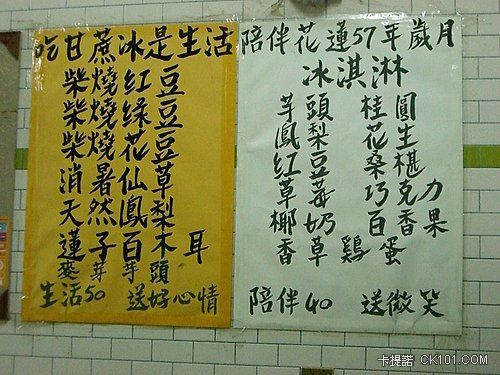 吃甘蔗冰是生活
柴燒紅豆
柴燒绿豆
柴燒花豆
消暑仙草
天然鳳梨
蓮子百木耳
麥芽芋頭
生活50 送好心情
陪伴花蓮57年歲月
冰淇淋
芋頭 桂圓
鳳梨 花生
紅豆 桑椹
草莓 巧克力
椰奶 百香果
香草 雞蛋
陪伴40 送微笑
卡提諾 CK101.COM